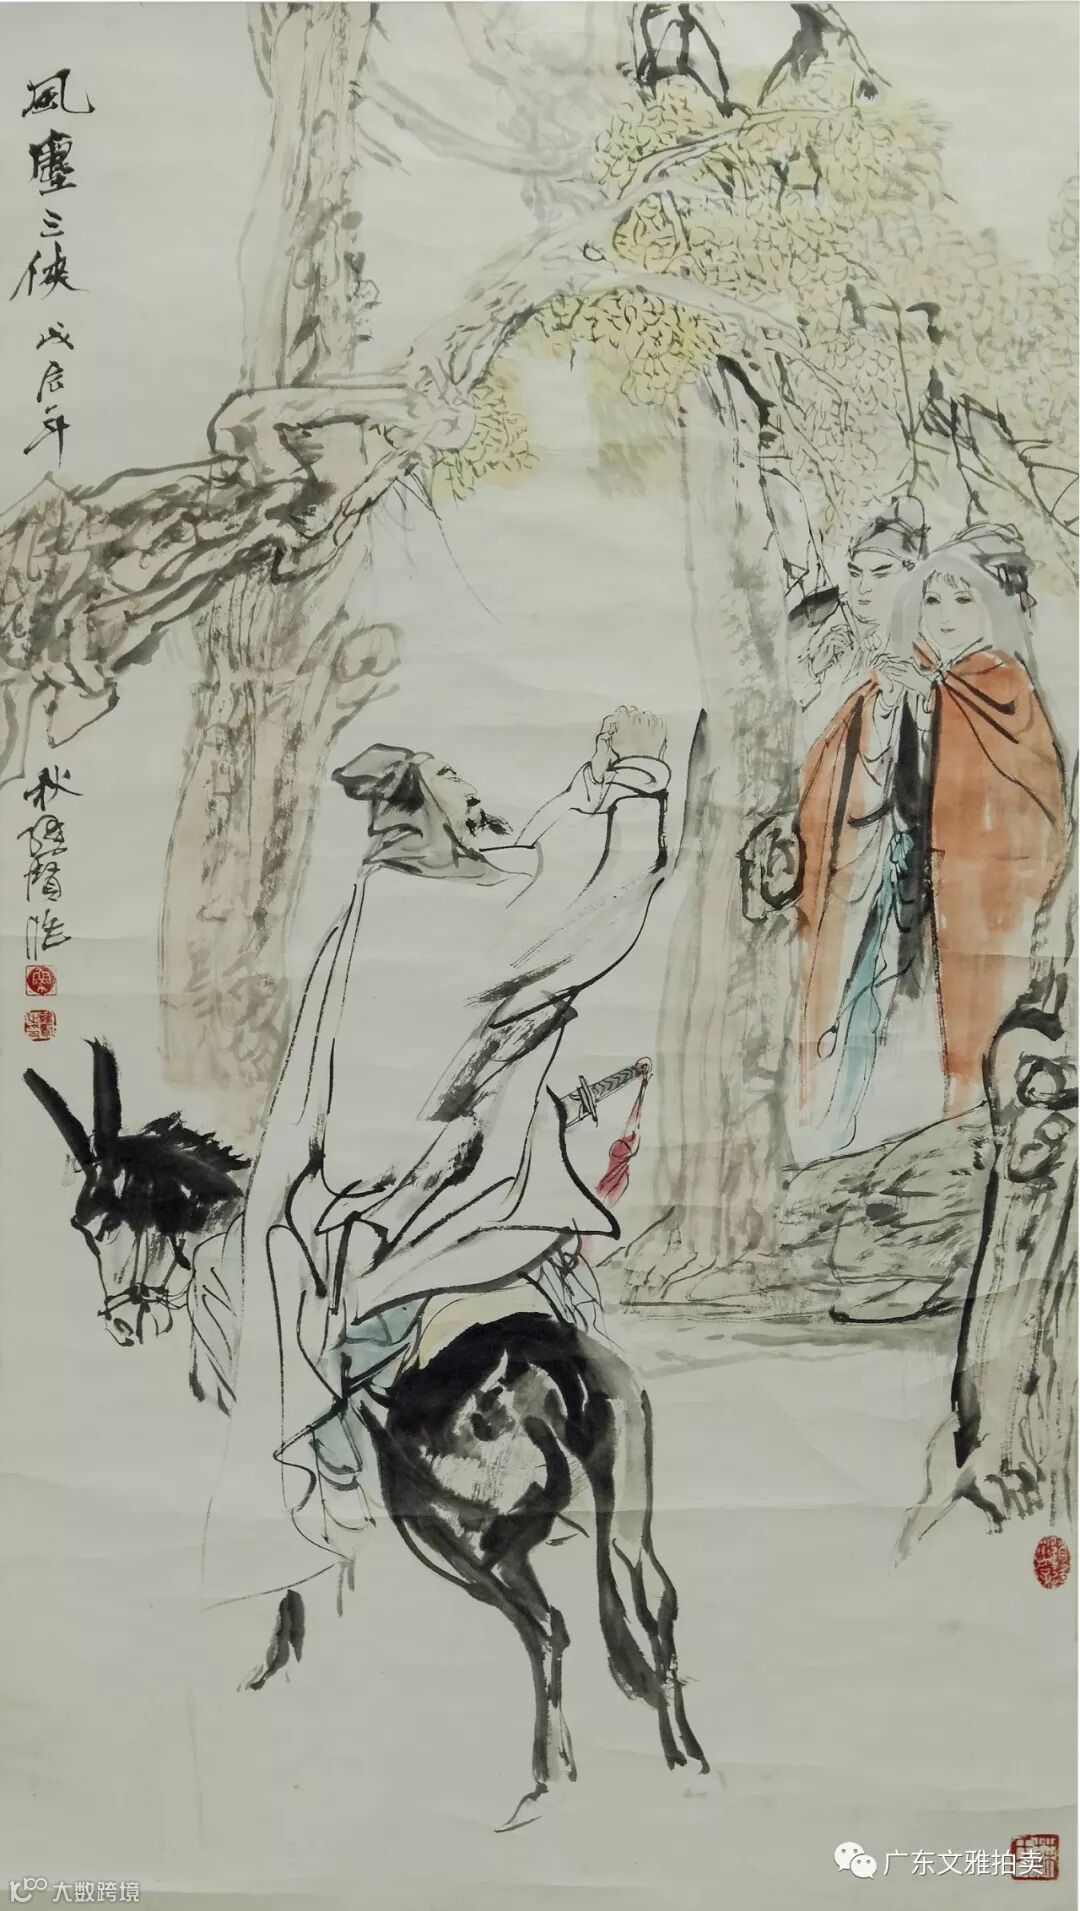 風塵三俠 戊辰年
秋 賢浩
广东文雅拍卖
大数跨境